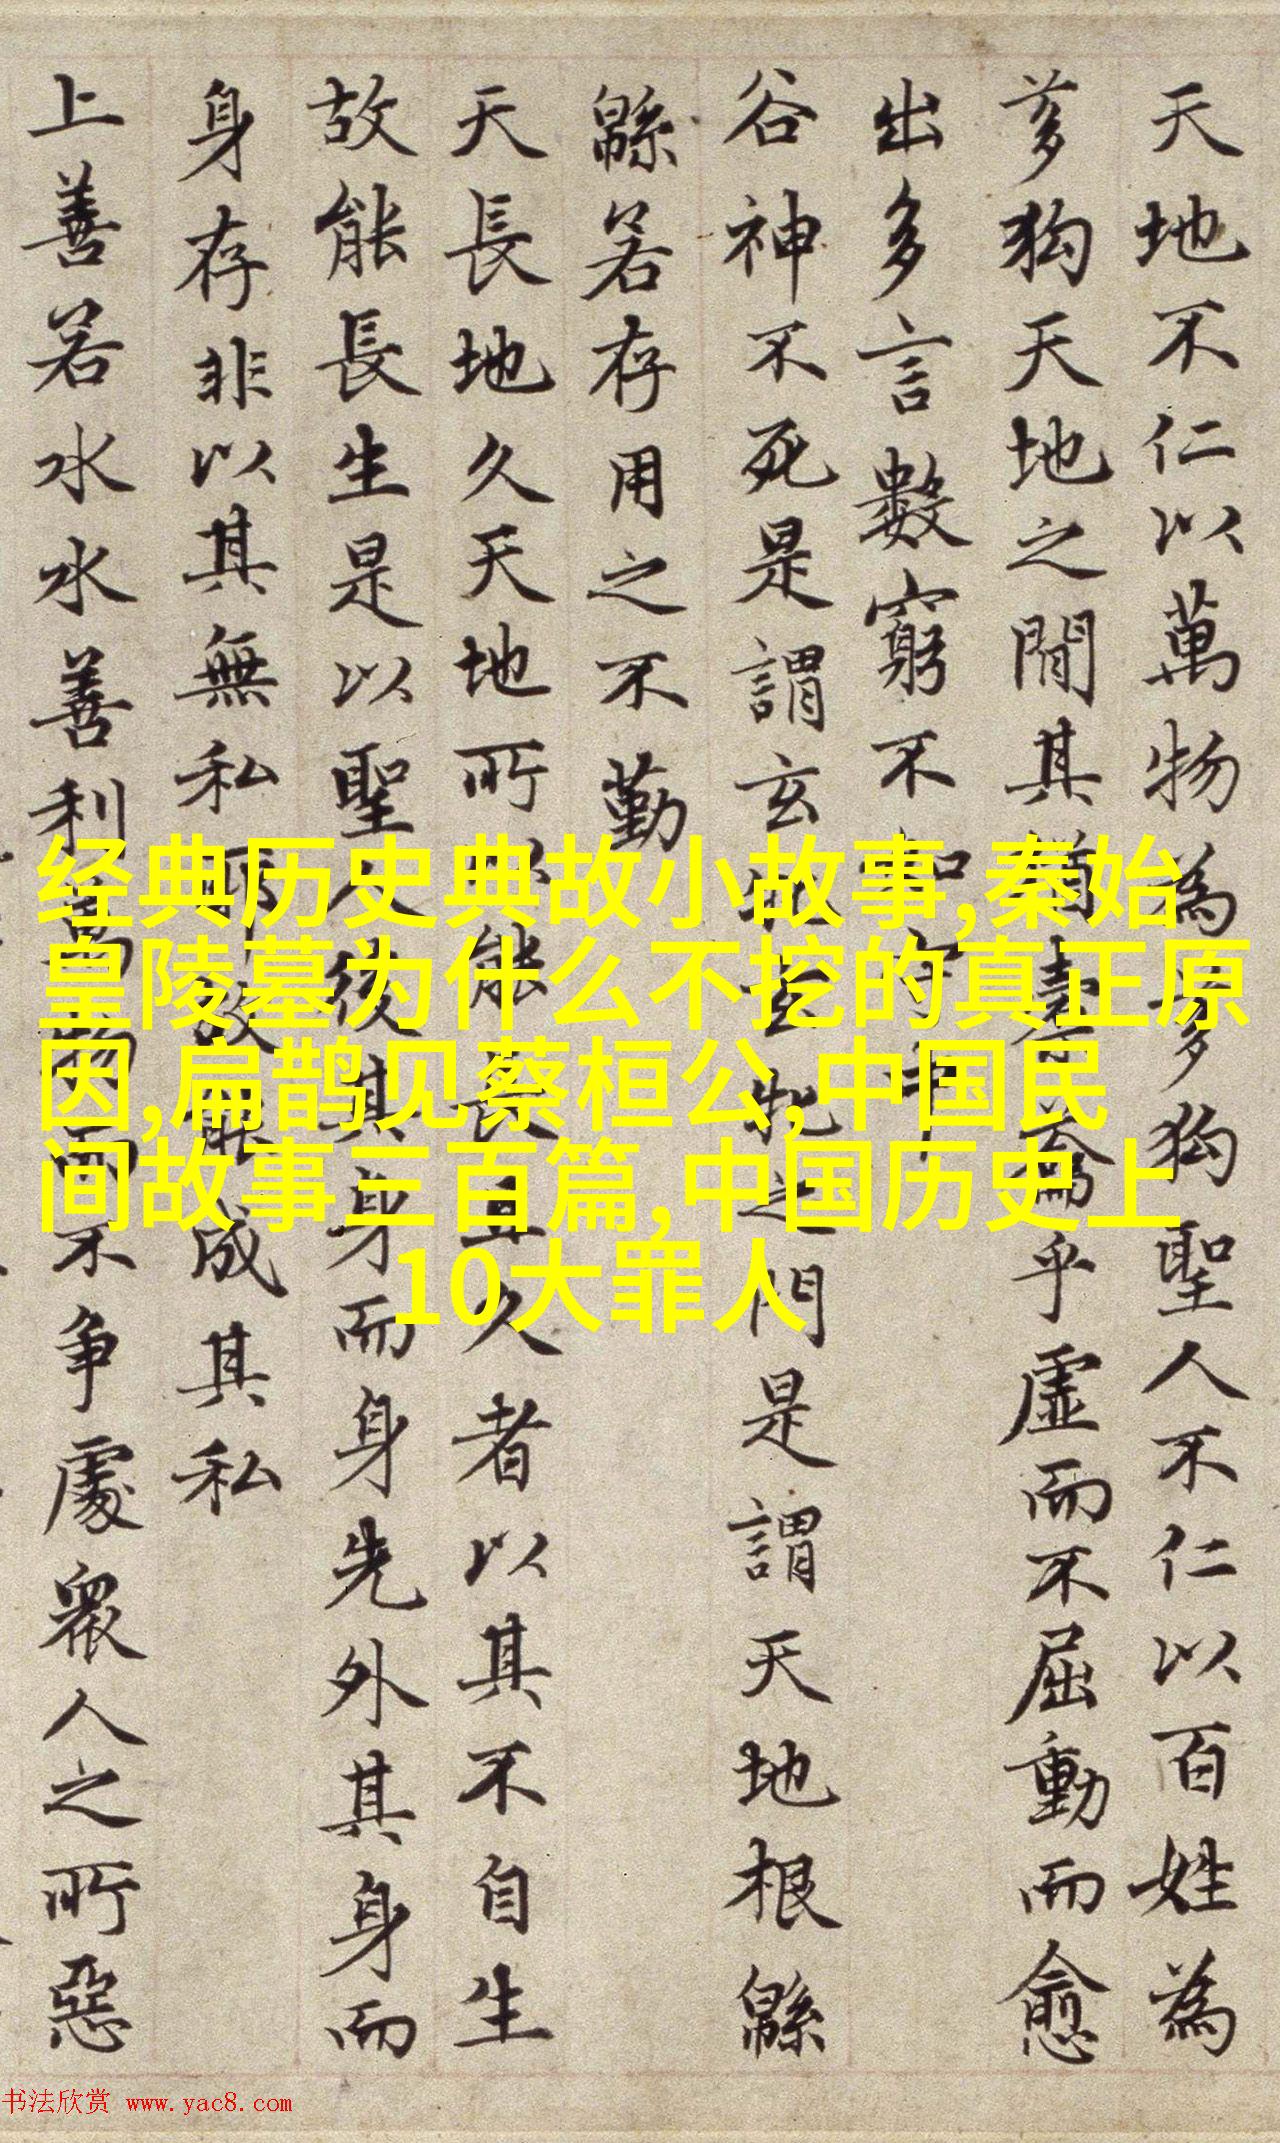 天地不仁以萬物為芻狗聖人不仁以百姓為
芻狗天地之間其猶橐籥乎虛而不屈動而愈
出多言數窮不如守中
谷神不死是謂玄牝玄牝之門是謂天地根緜
緜若存用之不勤
天長地久天地所以能長且久者以其不自生
故能長生是以聖人後其身而身先外其身而
身存非以其無私耶故能成其私
上善若水水善利萬物而不争處眾人之所惡
经典历史典故小故事,秦始
皇陵墓为什么不挖的真正原
因,扁鹊见蔡桓公,中国民
间故事三百篇,中国历史上
10大罪人
书法欣赏 www.yac8.com